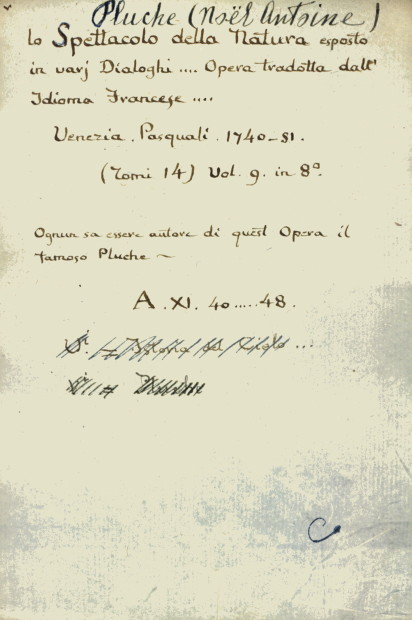 Pluche (Noël Antoine)
lo Spettacolo della Natura esposto
in varj Dialoghi .... Opera tradotta dall'
Idioma Francese ....
Venezia . Pasquali . 1740-51.
(Tomi 14) Vol. 9. in 8º.
Ognun sa essere autore di quest Opera il
famoso Pluche ~
A . XI. 40.....48.